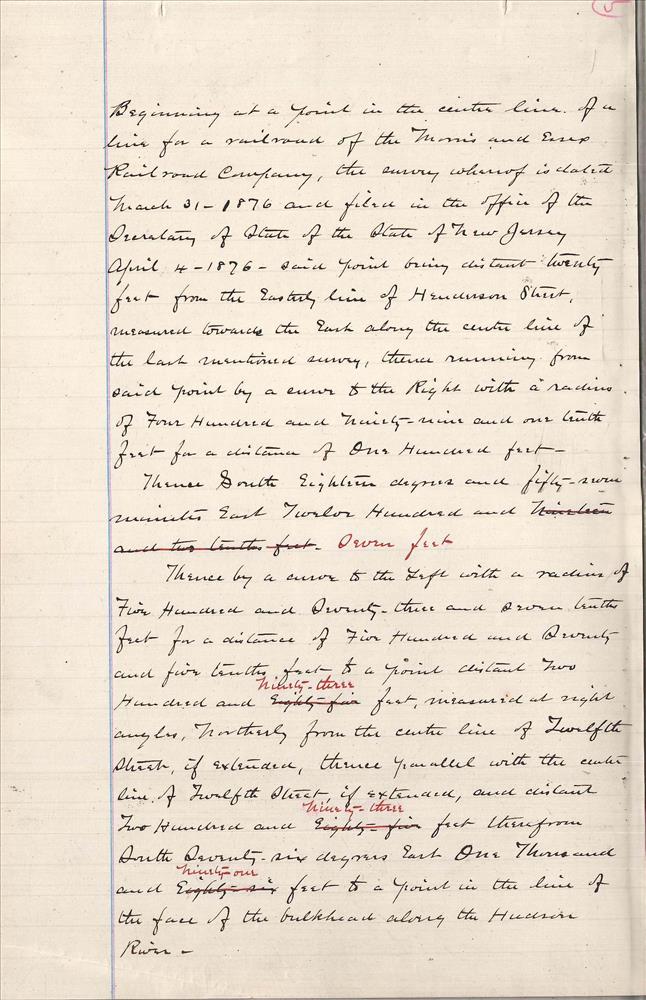 Beginning at a point in the centre line of a
line for a railroad of the Morris and Essex
Railroad Company, the survey whereof is dated
March 31 - 1876 and filed in the office of the
Secretary of State of the State of New Jersey
April 4 - 1876 - said point being distant twenty
feet from the Easterly line of Henderson Street,
measured towards the East along the centre line of
the last mentioned survey, thence running from
said point by a curve to the Right with a radius
of Four Hundred and Ninety-nine and one tenth
feet for a distance of One Hundred feet -
Thence South Eighteen degrees and fifty-seven
minutes East Twelve Hundred and Nineteen
and two tenths feet. Seven feet
Thence by a curve to the Left with a radius of
Five Hundred and Seventy-three and seven tenths
feet for a distance of Five Hundred and Seventy
and five tenths feet to a point distant Two
Ninety-three
Hundred and Eighty-five feet, measured at right
angles, Northerly from the centre line of Twelfth
Street, if extended, thence parallel with the centre
line of Twelfth Street, if extended, and distant
Ninety-three
Two Hundred and Eighty-five feet therefrom
South Seventy-six degrees East One Thousand
Ninety-one
and Eighty-six feet to a point in the line of
the face of the bulkhead along the Hudson
River -